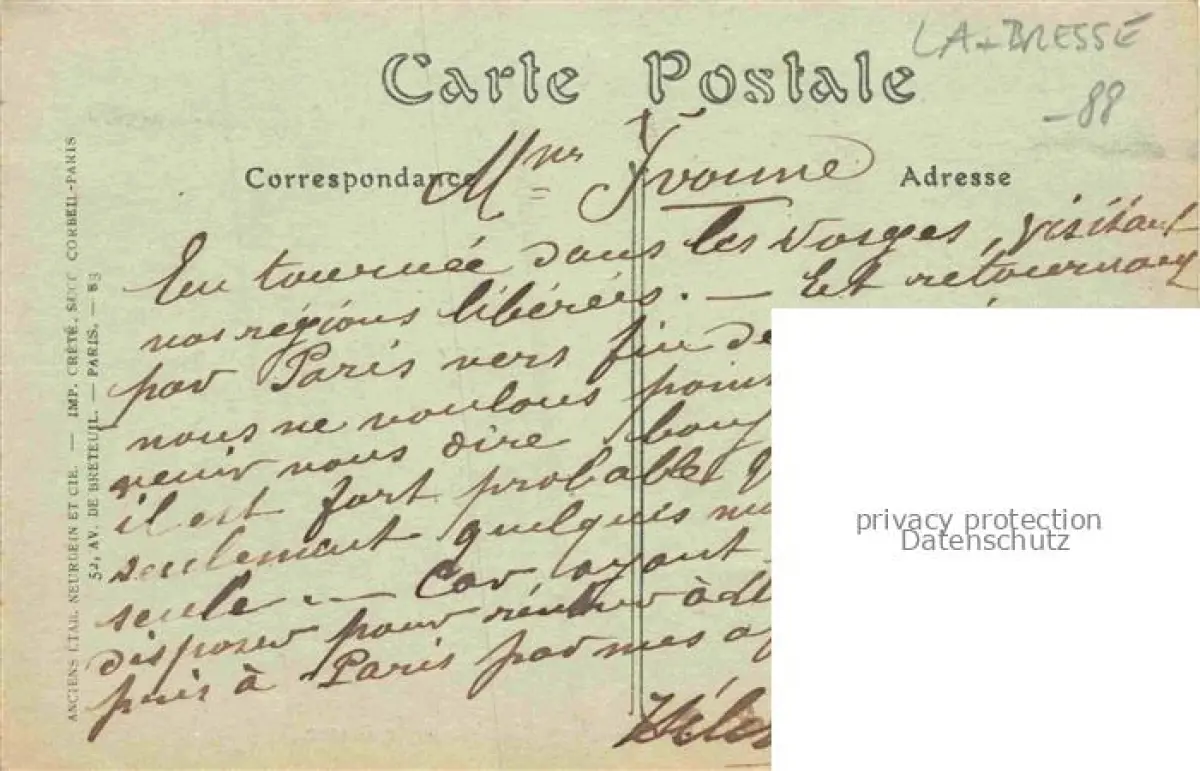 LA BRESSE
Carte Postale
- 88
Mme Yvonne
Correspondance
Adresse
En tournée dans les Vosges, visitant
nos régions libérées. — Et retournant
par Paris vers fin de
nous ne voulons point
venir vous dire
il est fort probable q
seulement quelques
seule. — Car ayant
disposer pour
puis à Paris par mes
Hélè
ANCIENS ETAB. NEURDEIN ET CIE. — IMP. CRÉTÉ, SUCC CORBEIL-PARIS
52, AV. DE BRETEUIL. — PARIS. — 83
privacy protection
Datenschutz